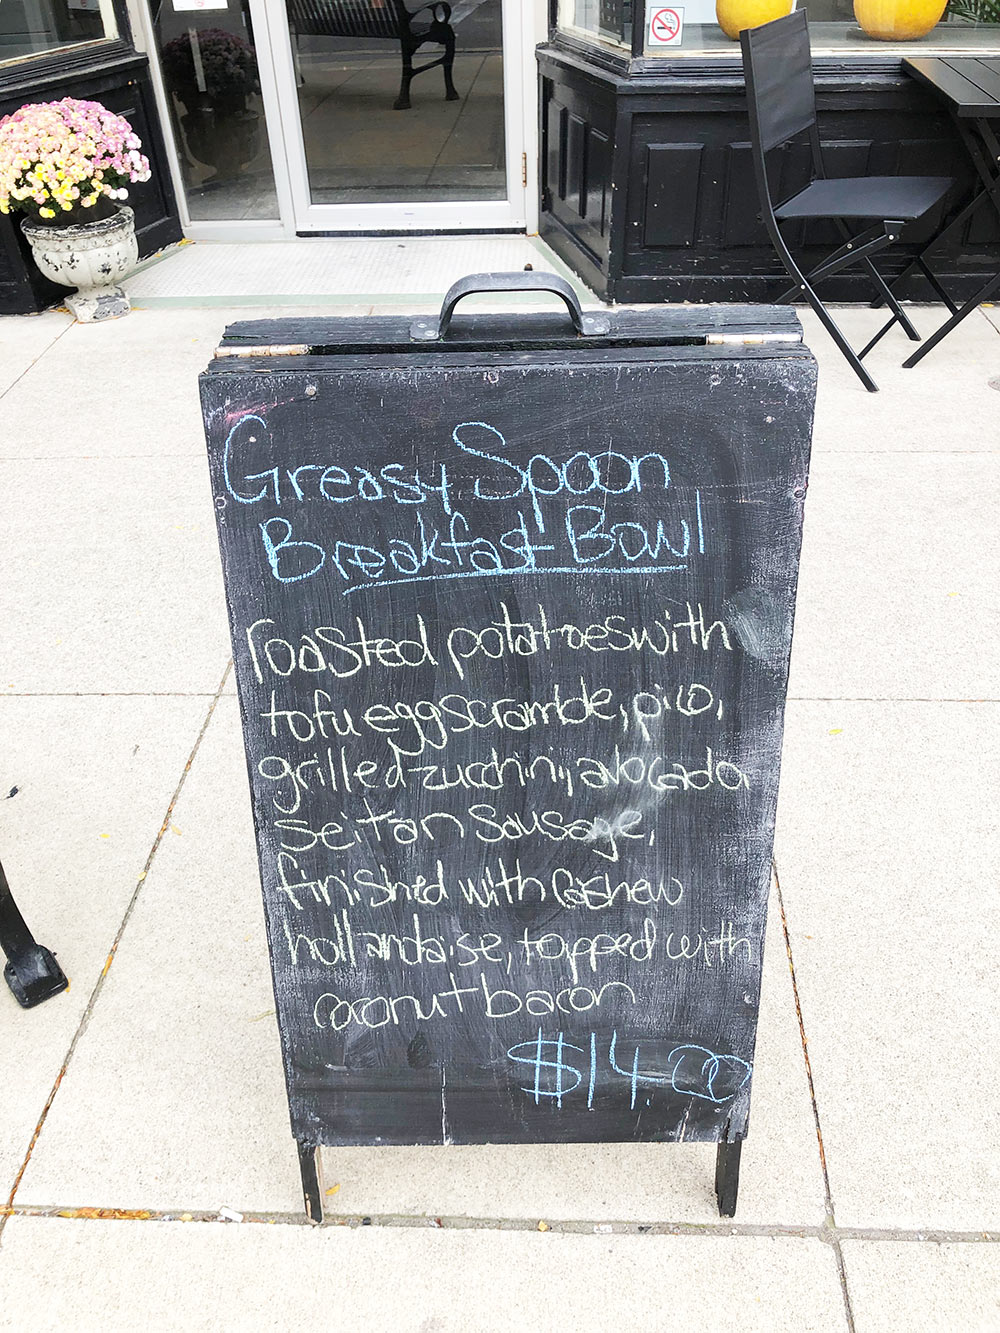 Greasy Spoon
Breakfast Bowl
roasted potatoes with
tofu egg scramble, pico,
grilled zucchini, avocado,
seitan sausage,
finished with Cashew
hollandaise, topped with
coconut bacon
$14.00